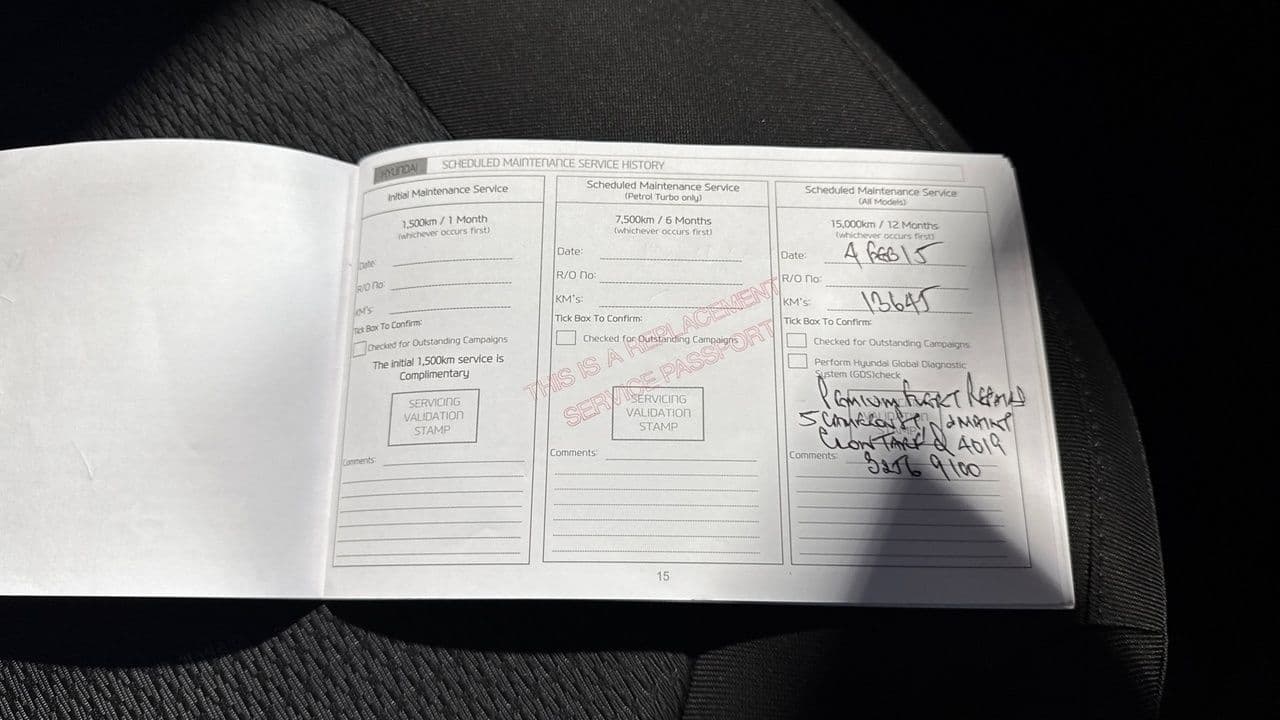 HYUNDAI
SCHEDULED MAINTENANCE SERVICE HISTORY
Initial Maintenance Service
1,500km / 1 Month
(whichever occurs first)
Date:
R/O No:
KM's:
Tick Box To Confirm:
Checked for Outstanding Campaigns
The initial 1,500km service is
Complimentary
SERVICING
VALIDATION
STAMP
Comments:
Scheduled Maintenance Service
(Petrol Turbo only)
7,500km / 6 Months
(whichever occurs first)
Date:
R/O No:
KM's:
Tick Box To Confirm:
Checked for Outstanding Campaigns
THIS IS A REPLACEMENT
SERVICE PASSPORT
SERVICING
VALIDATION
STAMP
Comments:
Scheduled Maintenance Service
(All Models)
15,000km / 12 Months
(whichever occurs first)
Date: 4 FEB 15
R/O No:
KM's: 13645
Tick Box To Confirm:
Checked for Outstanding Campaigns
Perform Hyundai Global Diagnostic
System (GDS)check
PREMIUM FLEET
5
CLONTARF Q 4019
Comments:
3256 9100
15